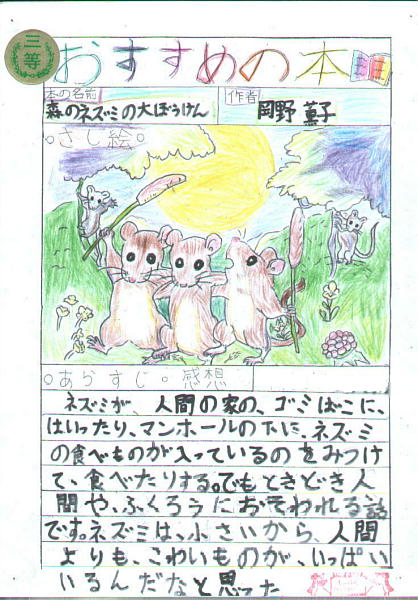 三等
おすすめの本
本の名前
森のネズミの大ぼうけん
作者
岡野 薫子
さし絵
あらすじ。感想
ネズミが、人間の家の、ゴミばこに、
はいったり、マンホールの下に、ネズミ
の食べものが入っているのをみつけ
て、食べたりする。でもときどき人
間や、ふくろうにおそわれる話
です。ネズミは、小さいから、人間
よりも、こわいものが、いっぱい
いるんだなと思った